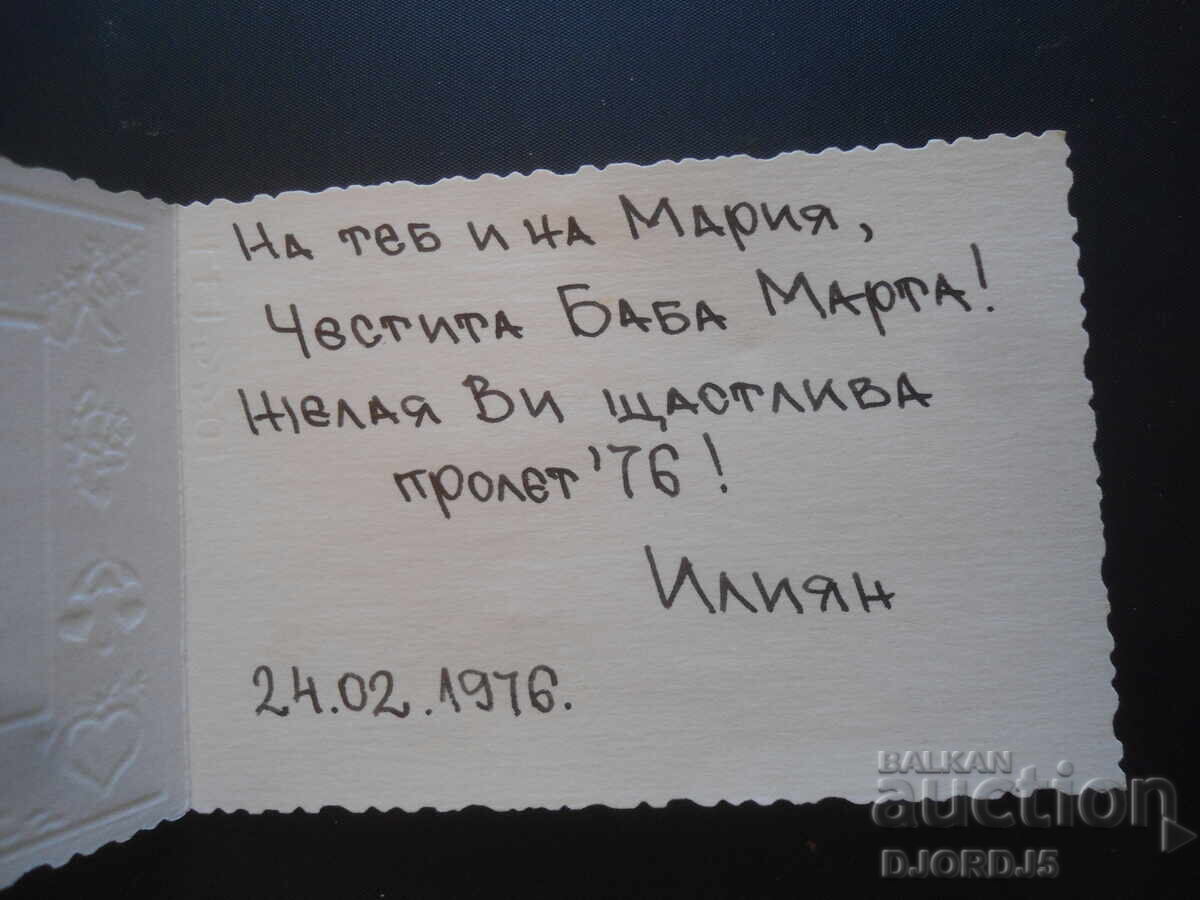 На теб и на Мария,
Честита Баба Марта!
Желая Ви щастлива
пролет '76!
Илиян
24.02.1976.
BALKAN
auction
DJORDJ5